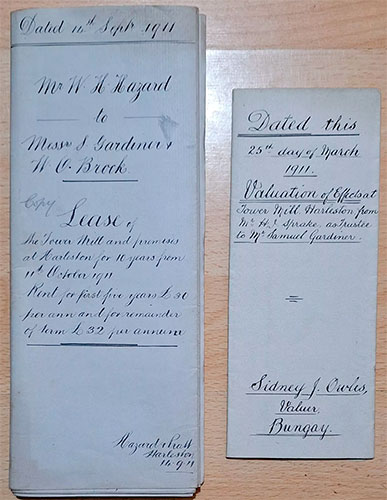 Dated 16th Sept 1911
Mr W. H Hazard
to
Messrs S. Gardiner &
W. O. Brock.
Copy
Lease of
the Tower Mill and premises
at Harleston for 10 years from
11th October 1911
Rent for first five years £30
per ann and for remainder
of term £32 per annum
Hazard & Pratt
Harleston
16.9.11
Dated this
25th day of March
1911.
Valuation of Effects at
Tower Mill Harleston from
Mr H. Sprake, as Trustee
to Mr Samuel Gardiner.
Sidney J. Owles,
Valuer,
Bungay.